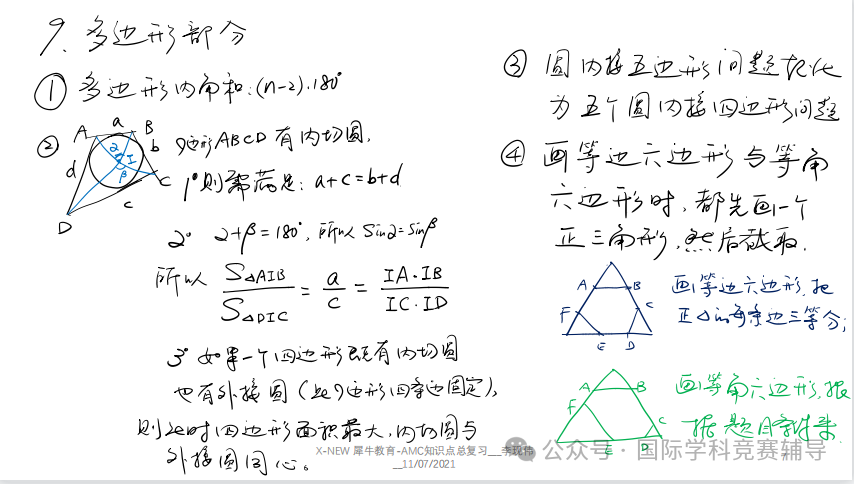 9. 多边形部分
① 多边形内角和:(n-2)·180°
② 四边形ABCD有内切圆,
A a B
b
2
I
β
d
C
c
D
1° 则需满足: a+c=b+d
2° 2+β=180°, 所以 Sin2=Sinβ
所以 S△AIB / S△DIC = a / c = IA·IB / IC·ID
3° 如果一个四边形既有内切圆
也有外接圆(此四边形四条边固定),
则此时四边形面积最大,内切圆与
外接圆同心。
③ 圆内接五边形问题
为五个圆内接四边形问题
④ 画等边六边形与等角
六边形时,都先画一个
正三角形,然后截取.
A B
F C
E D
画等边六边形,把
正△的每条边三等分;
A B
F
C
E D
画等角六边形,根
据题目条件来.
X-NEW 犀牛教育-AMC知识点总复习__李现伟
__11/07/2021
公众号·国际学科竞赛辅导